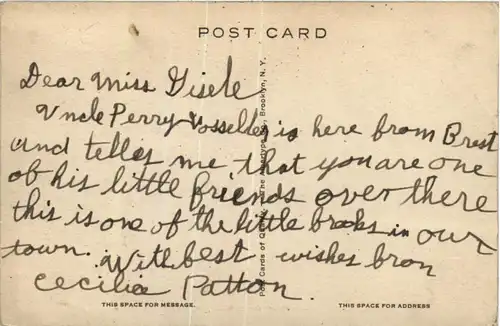 POST CARD
Dear Miss Gisele
Uncle Perry Vosseller is here from Brest
and telles me that you are one
of his little friends over there
this is one of the little brooks in our
town. With best wishes from
Cecilia Patton.
THIS SPACE FOR MESSAGE.
THIS SPACE FOR ADDRESS
Post Cards of Quality. The Albertype Co., Brooklyn, N. Y.